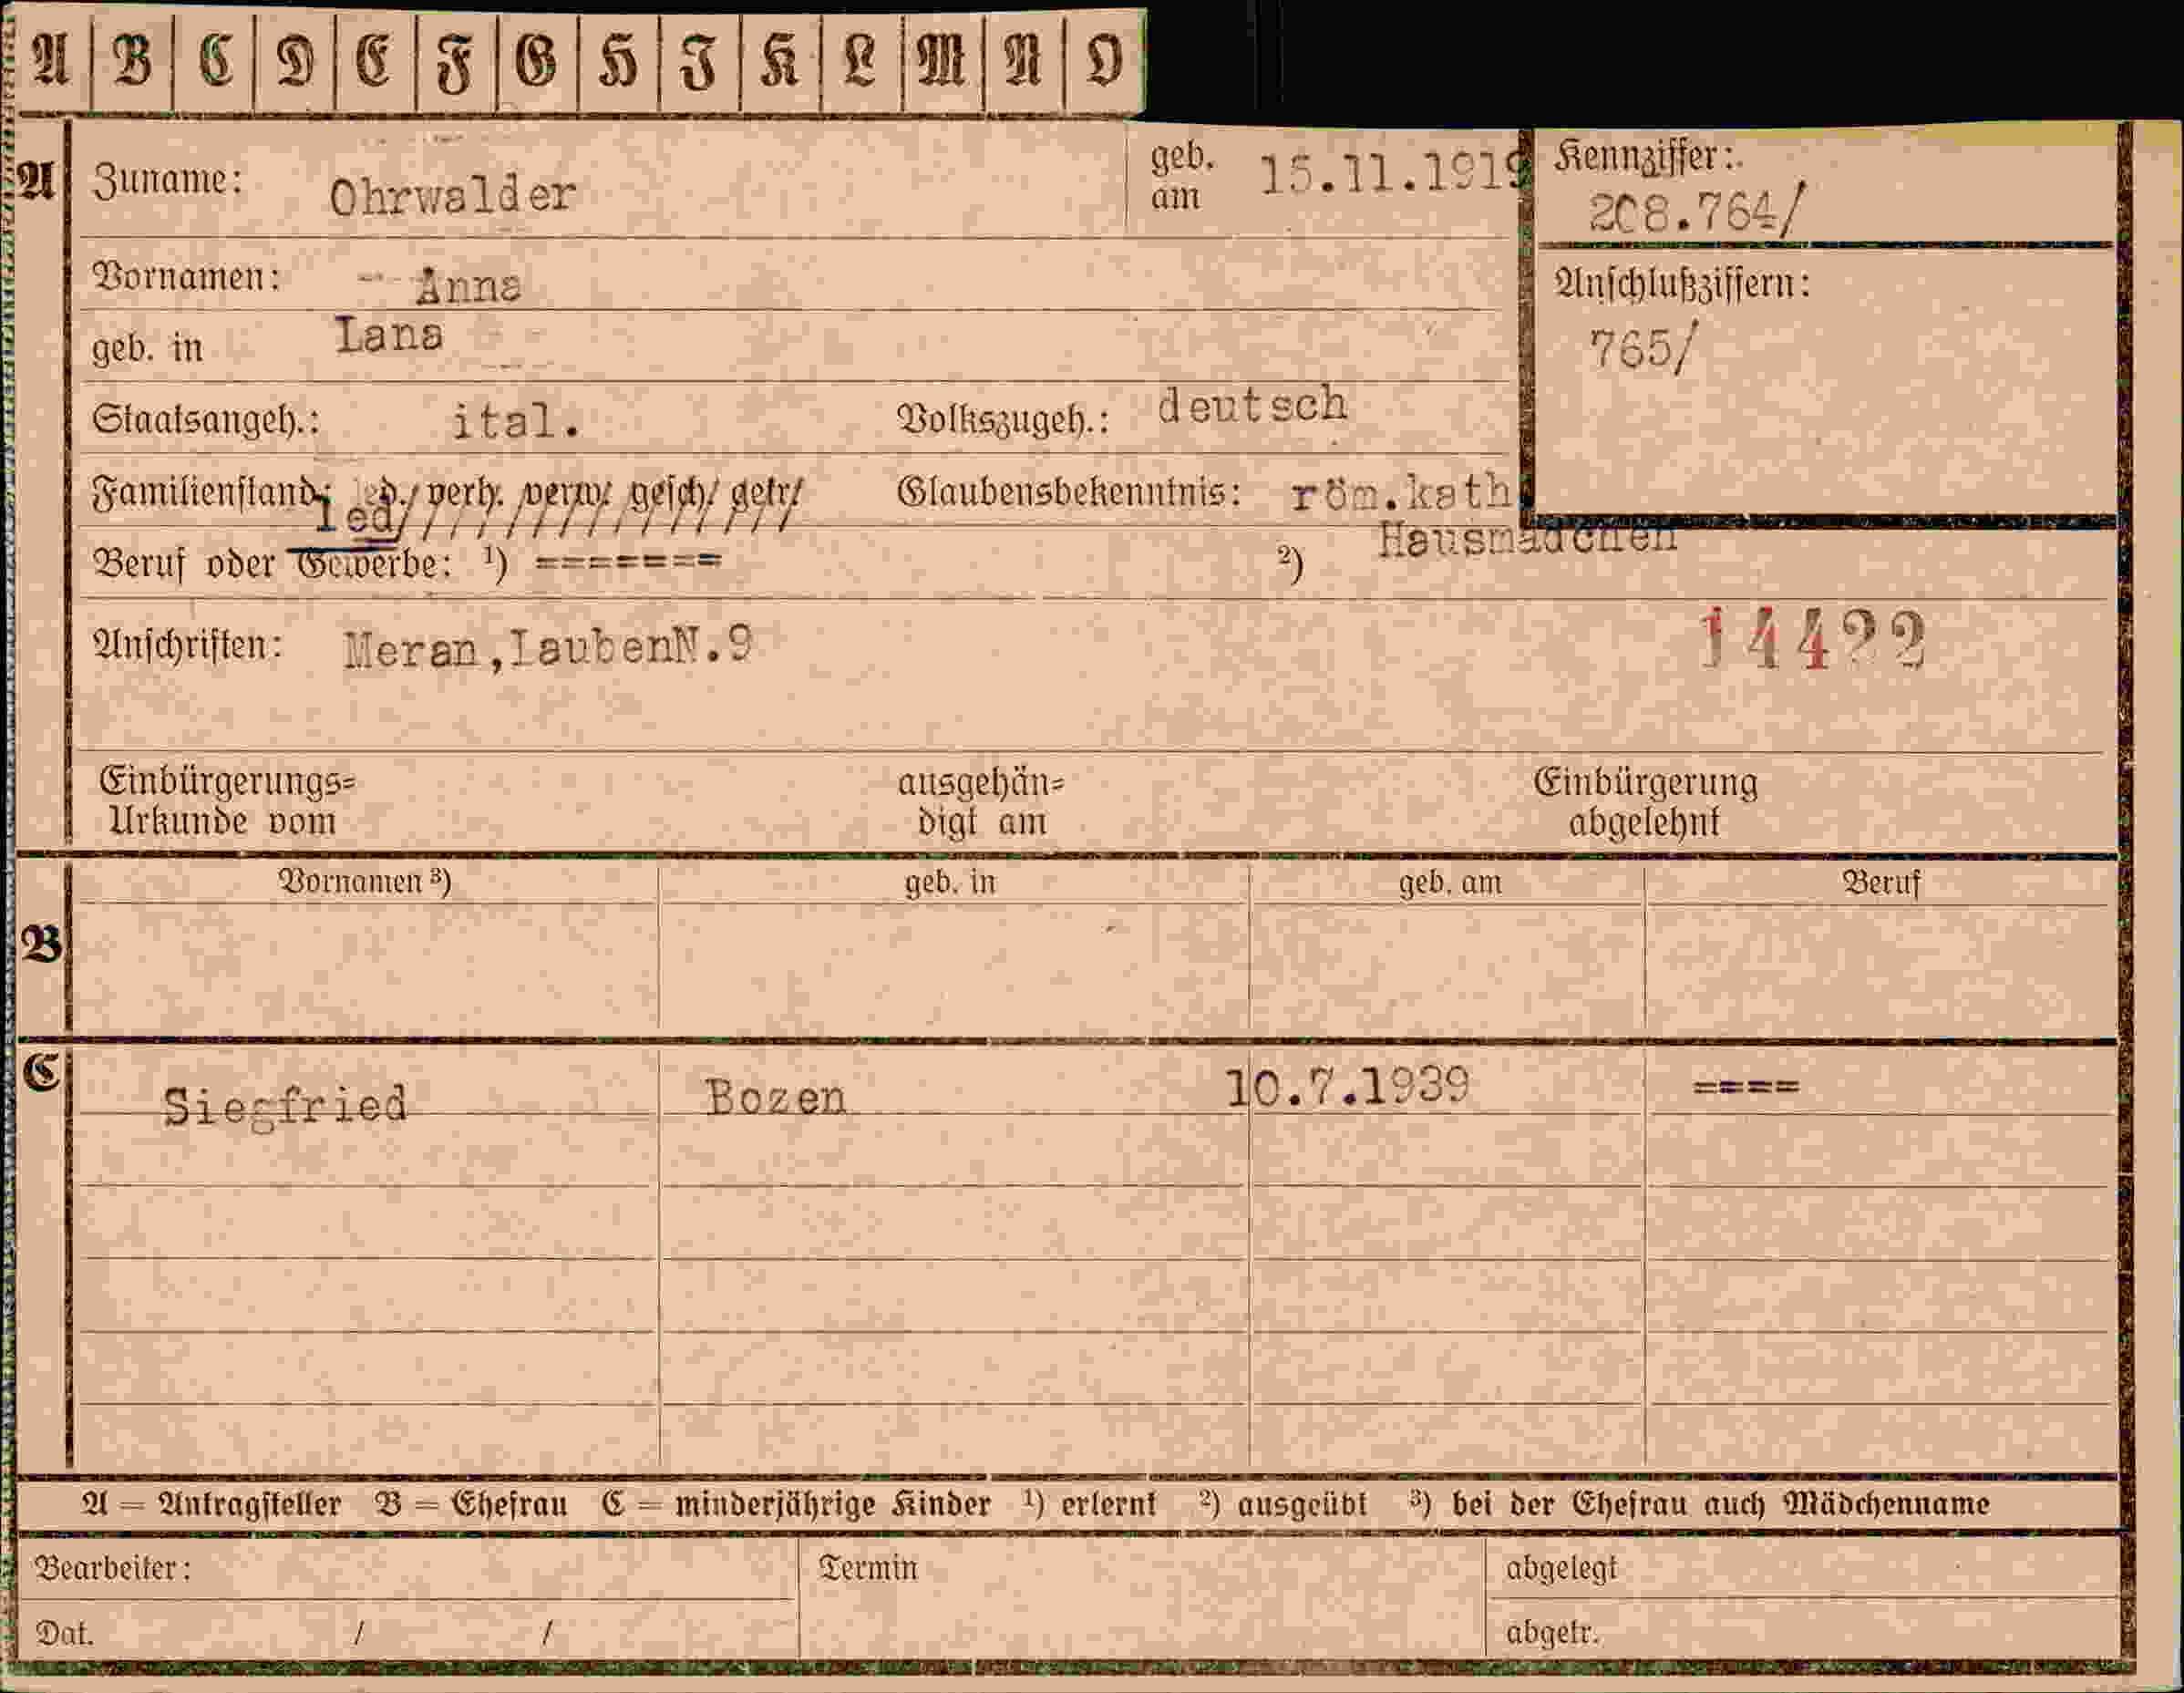 A B C D E F G H I K L M N O
A Zuname: Ohrwalder geb. am 15.11.1919 Kennziffer: 208.764/
Vornamen: Anna Anschlußziffern:
geb. in Lana 765/
Staatsangeh.: ital. Volkszugeh.: deutsch
Familienstand: led./verh. verw. gesch. getr. Glaubensbekenntnis: röm.kath
led/
Beruf oder Gewerbe: ¹) ======= ²) Hausmädchen
Anschriften: Meran,LaubenN.9 14422
Einbürgerungs= ausgehän= Einbürgerung
Urkunde vom digt am abgelehnt
Vornamen ³) geb. in geb. am Beruf
B
C Siegfried Bozen 10.7.1939 ====
A = Antragsteller B = Ehefrau C = minderjährige Kinder ¹) erlernt ²) ausgeübt ³) bei der Ehefrau auch Mädchenname
Bearbeiter: Termin abgelegt
Dat. / / abgetr.